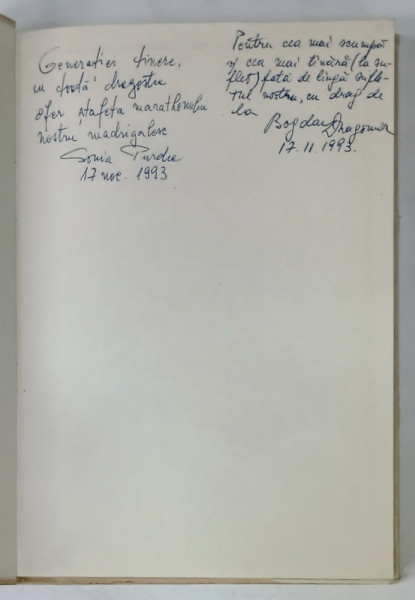 Generației tinere,
cu toată dragostea
ofer ștafeta marathonului
nostru madrigalesc
Sonia
17 noe. 1993
Pentru cea mai scumpă
și cea mai tînără (la su-
flet) fată de lîngă sufle-
tul nostru, cu drag de
la
Bogdan Dragomir
17.11.1993.